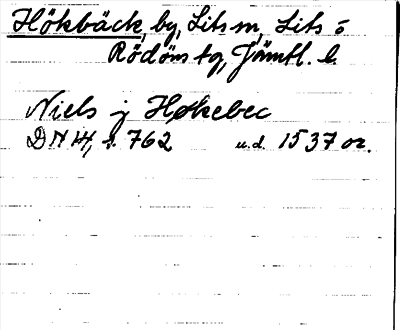 Hökbäck, by, Lits sn, Lits o
Rödöns tg, Jämtl. l.
Niels j Høkebec
DN 14, s. 762 u.d. 1537 or.